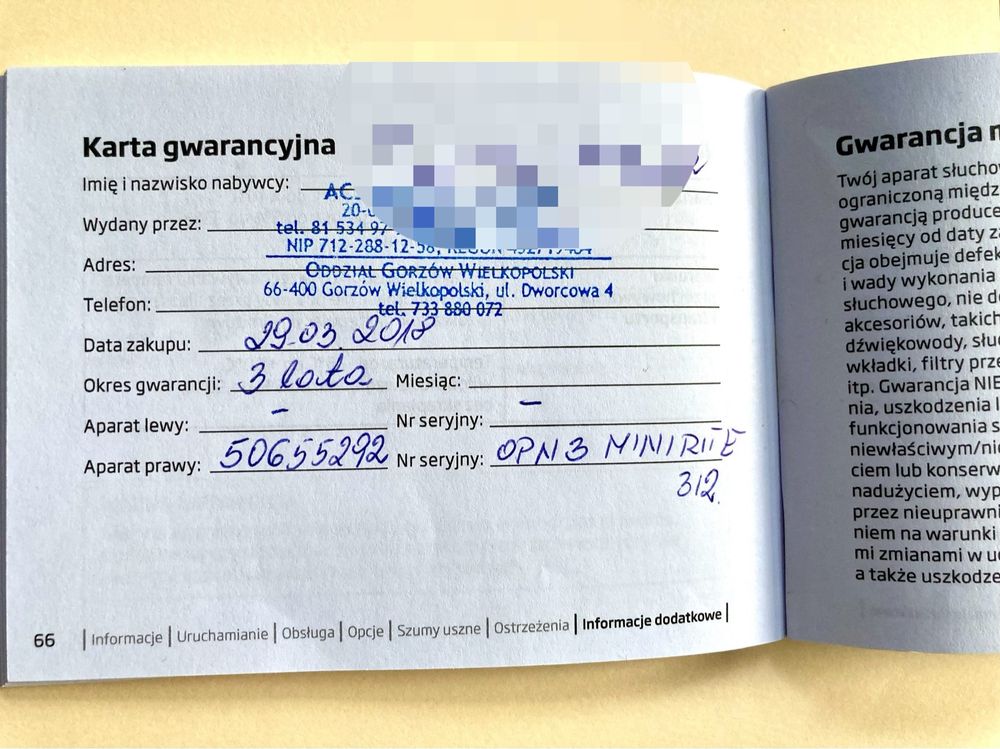 Karta gwarancyjna
Imię i nazwisko nabywcy:
Wydany przez:
tel. 81 534 97
NIP 712-288-12-
Adres:
ODDZIAŁ GORZÓW WIELKOPOLSKI
66-400 Gorzów Wielkopolski, ul. Dworcowa 4
Telefon:
tel. 733 880 072
Data zakupu: 29.03.2018
Okres gwarancji: 3 lata Miesiąc:
Aparat lewy: - Nr seryjny: -
Aparat prawy: 50655292 Nr seryjny: OPN 3 MINIRITE
312.
66 | Informacje | Uruchamianie | Obsługa | Opcje | Szumy uszne | Ostrzeżenia | Informacje dodatkowe |
Gwarancja
Twój aparat
ograniczoną
gwarancją
miesięcy od daty
cja obejmuje
i wady wykonania
słuchowego, nie
akcesoriów, takich
dźwiękowody,
wkładki, filtry
itp. Gwarancja
nia, uszkodzenia
funkcjonowania
ciem lub
nadużyciem,
przez
niem na warunki
mi zmianami w
a także